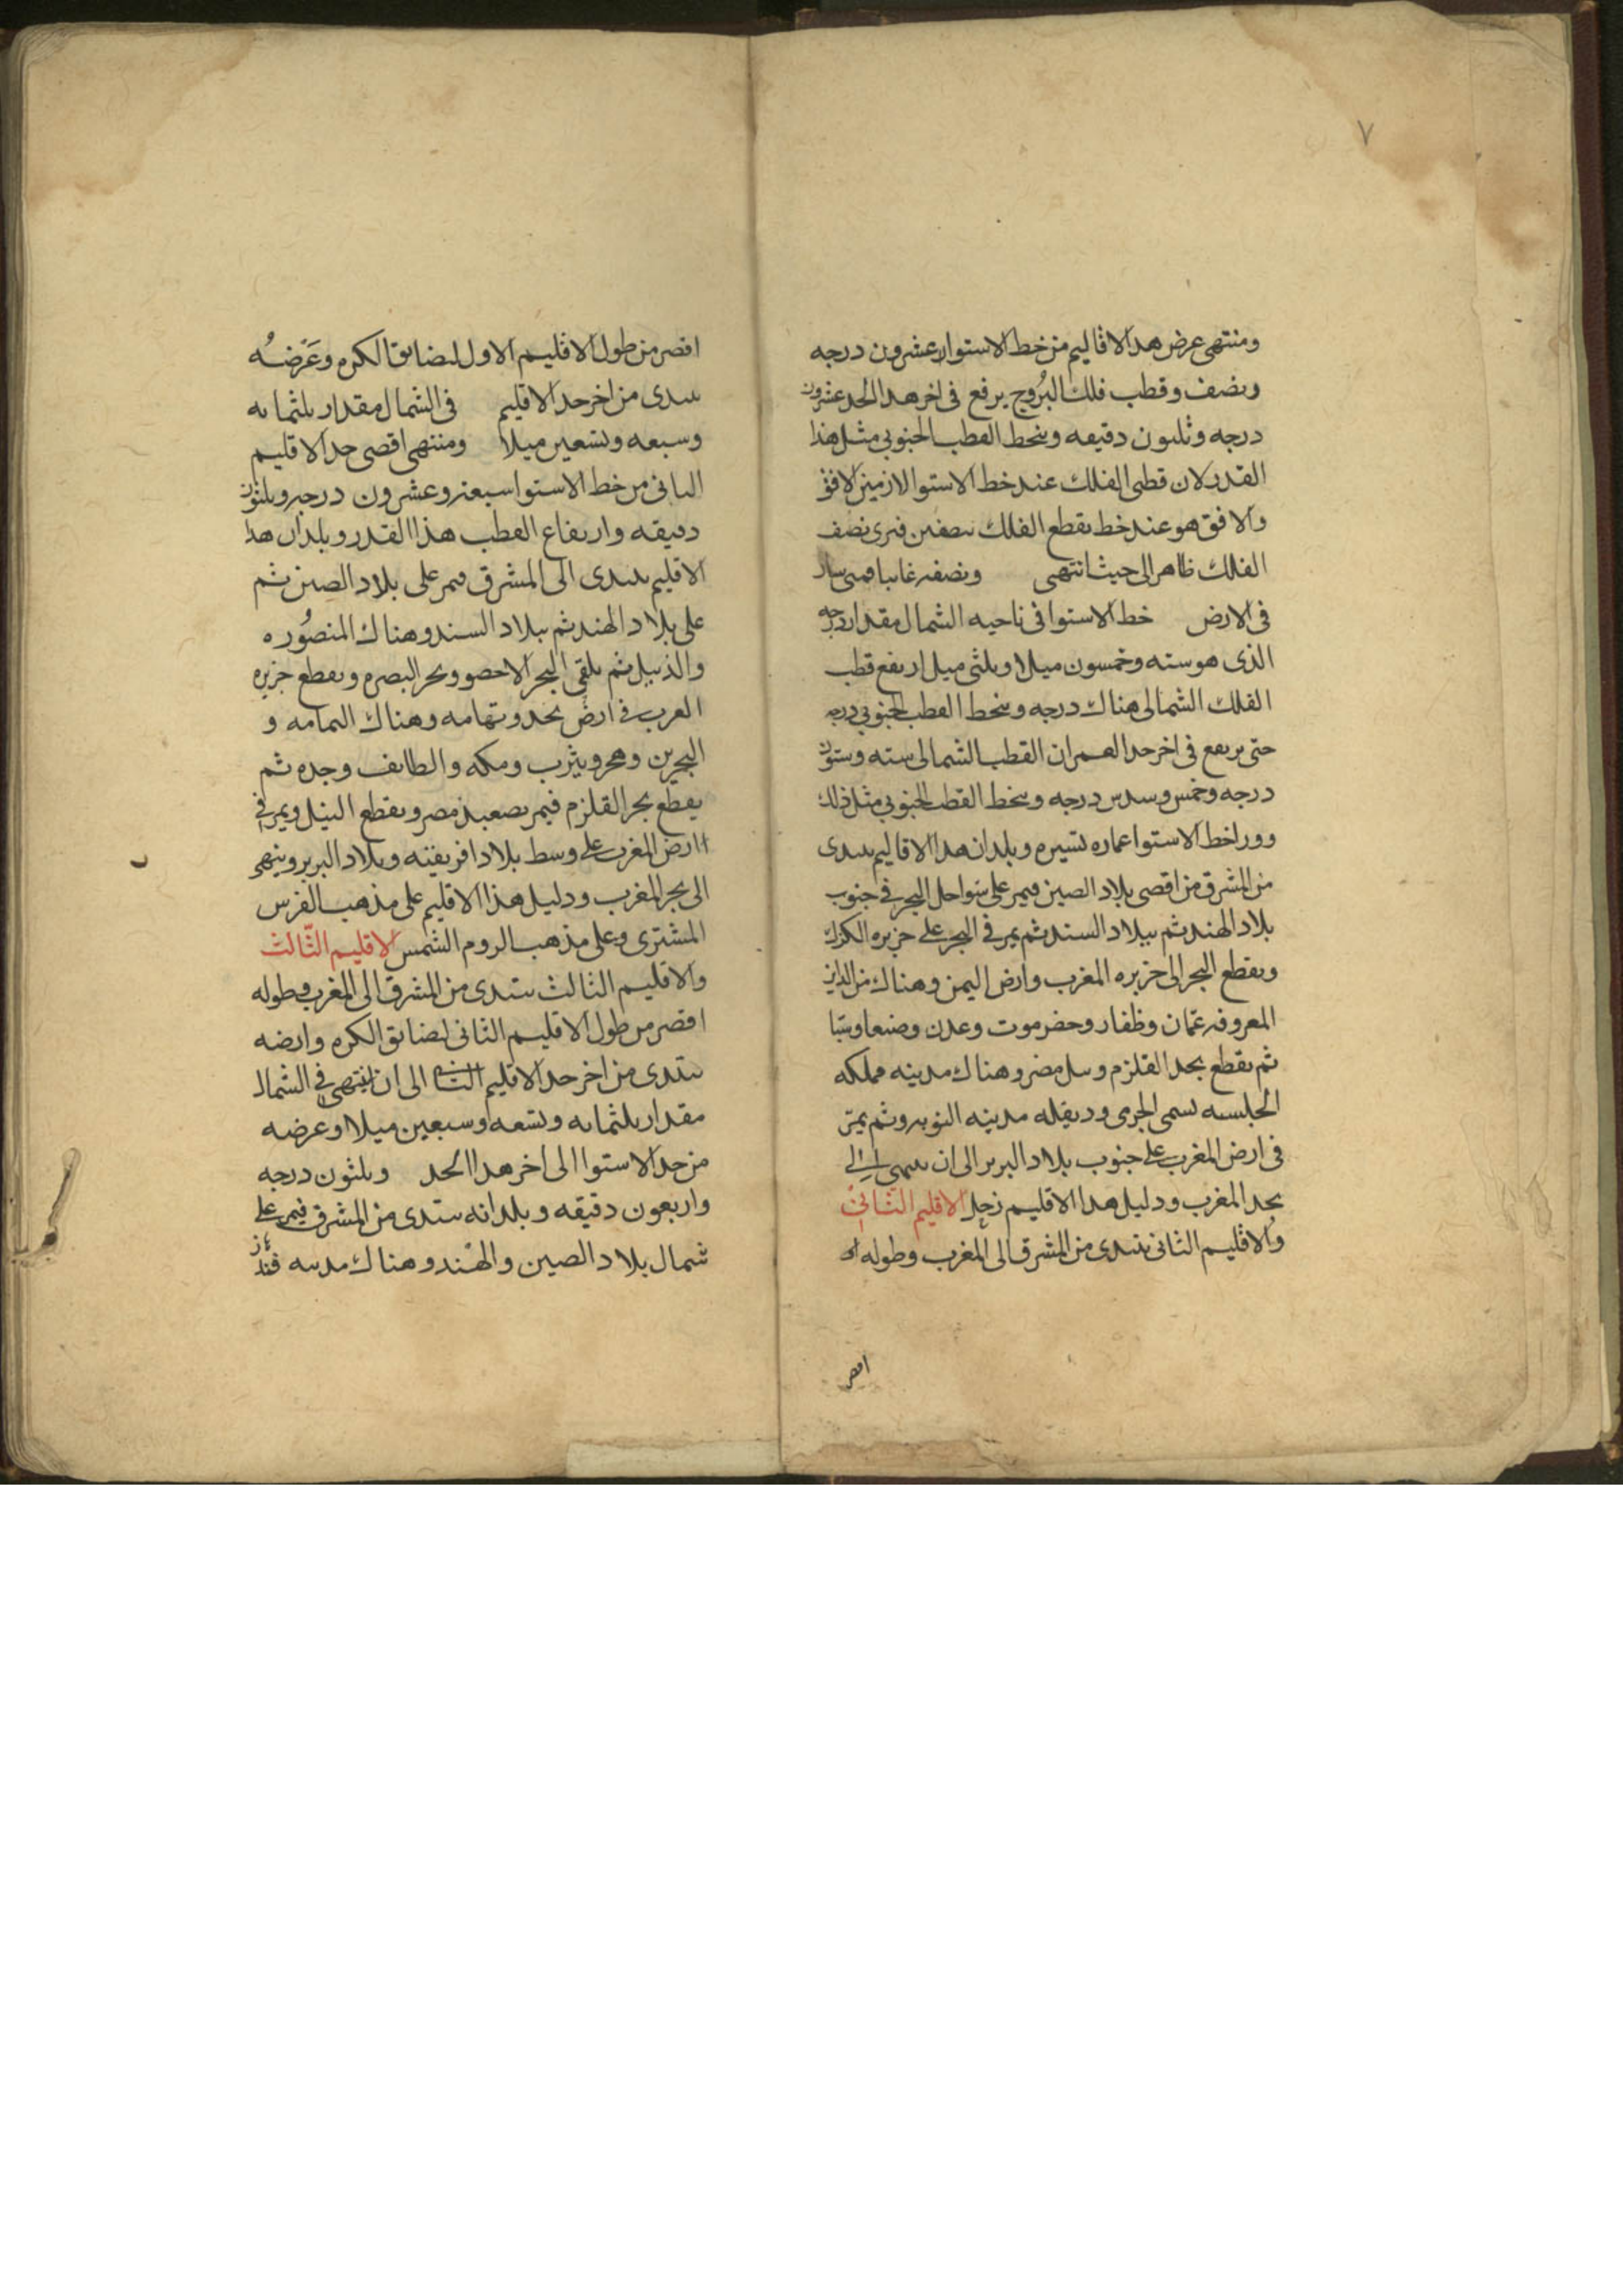 ٧
ومنتهى عرض هدا الاقاليم من خط الاستوا عشرون درجه
ونصف وقطب فلك البُروج يرفع فى اخر هدا الحد عشرون
درجه وثلثون دقيقه وينحط القطب الجنوبى مثل هذا
القدر لان قطبى الفلك عند خط الاستوا لازمين لافق
والافق هو عند خط يقطع الفلك نصفين فنرى نصف
الفلك ظاهر الى حيث انتهى ونصفه غايبا فمتى سار
فى الارض خط الاستوا فى ناحيه الشمال مقدار درجه
الذى هو سته وخمسون ميلا وثلثى ميل ارتفع قطب
الفلك الشمالى هناك درجه وينحط القطب الجنوبى درجه
حتى يرتفع فى اخر حد العمران القطب الشمالى سته وستون
درجه وخمس وسدس درجه وينحط القطب الجنوبى مثل ذلك
وورا خط الاستوا عماره يسيره وبلدان هدا الاقاليم يبتدى
من المشرق من اقصى بلاد الصين فيمر على سواحل البحر فى جنوب
بلاد الهند ثم ببلاد السند ثم يمر فى البحر على جزيره الكرك
ويقطع البحر الى جزيره المغرب وارض اليمن وهناك من المداين
المعروفه عمان وظفار وحضرموت وعدن وصنعا وسبا
ثم يقطع بحد القلزم وسل مصر وهناك مدينه مملكه
الحلبسه تسمى الجرمى ودىقله مدينه النوبه وثم يمرّ
فى ارض المغرب على جنوب بلاد البربر الى ان ينتهى الى
بحد المغرب ودليل هدا الاقليم زحل الاقليم الثانى
والاقليم الثانى يبتدى من المشرق الى المغرب وطوله
اقصر
اقصر من طول الاقليم الاول لتضايق الكره وعَرْضُه
يبتدى من اخر حد الاقليم فى الشمال مقدار ثلثمايه
وسبعه وتسعين ميلا ومنتهى اقصى حد الاقليم
الثانى من خط الاستوا سبعه وعشرون درجه وثلثون
دقيقه وارتفاع القطب هذا القدر وبلدان هذا
الاقليم يبتدى الى المشرق فيمر على بلاد الصين ثم
على بلاد الهند ثم ببلاد السند وهناك المنصُوره
والذبيل ثم يلقى البحر الاخضر وبحر البصره ويقطع جزيره
العرب فى ارض نجد وتهامه وهناك اليمامه و
البحرين وهجر ويثرب ومكه والطايف وجده ثم
يقطع بحر القلزم فيمر بصعيد مصر ويقطع النيل ويمر فى
ارض المغرب على وسط بلاد افريقيه وبلاد البربر وينتهى
الى بحر المغرب ودليل هذا الاقليم على مذهب الفرس
المشترى وعلى مذهب الروم الشمس الاقليم الثّالث
والاقليم الثالث يبتدى من المشرق الى المغرب وطوله
اقصر من طول الاقليم الثانى لتضايق الكره وارضه
يبتدى من اخر حد الاقليم الثانى الى ان ينتهى فى الشمال
مقدار ثلثمايه وتسعه وسبعين ميلا وعرضه
من حد الاستوا الى اخر هدا الحد وثلثون درجه
واربعون دقيقه وبلدانه يبتدى من المشرق فيمر على
شمال بلاد الصين والهند وهناك مدينه